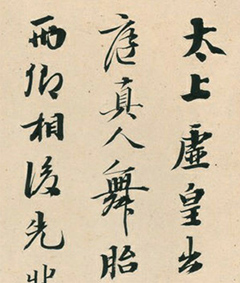 太上虛皇出
庭真人舞胎
兩卿相後先